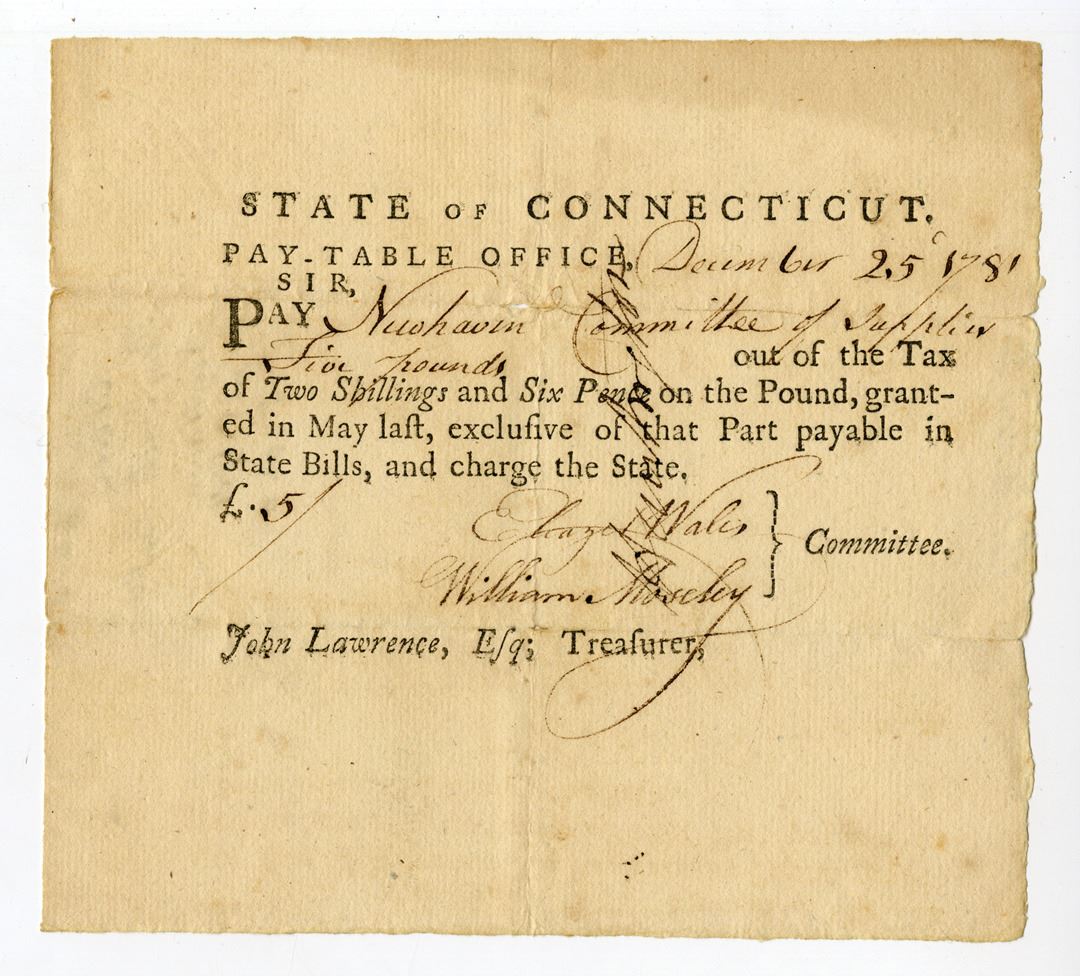 STATE OF CONNECTICUT.
PAY-TABLE OFFICE, December 25 1781
SIR,
PAY Newhaven Committee of Supplies
Five pounds out of the Tax
of Two Shillings and Six Pence on the Pound, grant-
ed in May laſt, excluſive of that Part payable in
State Bills, and charge the State.
£. 5
Eleazer Wales
William Moseley
} Committee.
John Lawrence, Eſq; Treaſurer,